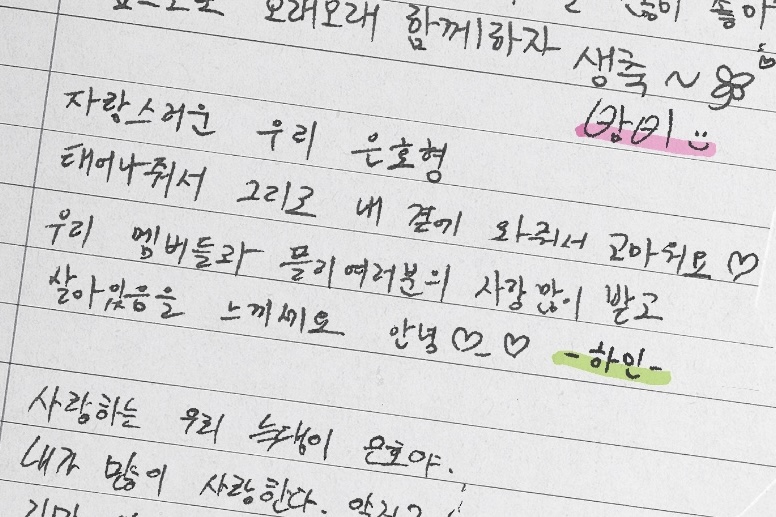 오래오래 함께하자 생축~
밤비
자랑스러운 우리 은호형
태어나줘서 그리고 내 곁에 와줘서 고마워요♡
우리 멤버들과 플리여러분의 사랑 많이 받고
살아있음을 느끼세요 안녕♡_♡ -하민-
사랑하는 우리 늑댕이 은호야.
내가 많이 사랑한다. 알지?